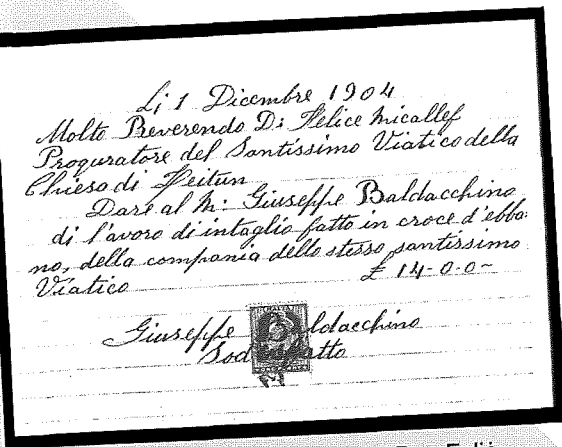 Li 1 Dicembre 1904
Molto Reverendo D: Felice Micallef
Proguratore del Santissimo Viatico della
Chiesa di Zeitun
Dare al M: Giuseppe Baldacchino
di l'avoro di intaglio fatto in croce d'ebba:
no, della compania dello stesso santissimo
Viatico £ 14-0-0~
Giuseppe Baldacchino
MALTA